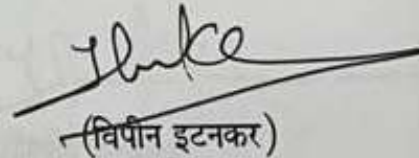 (विपीन इटनकर)